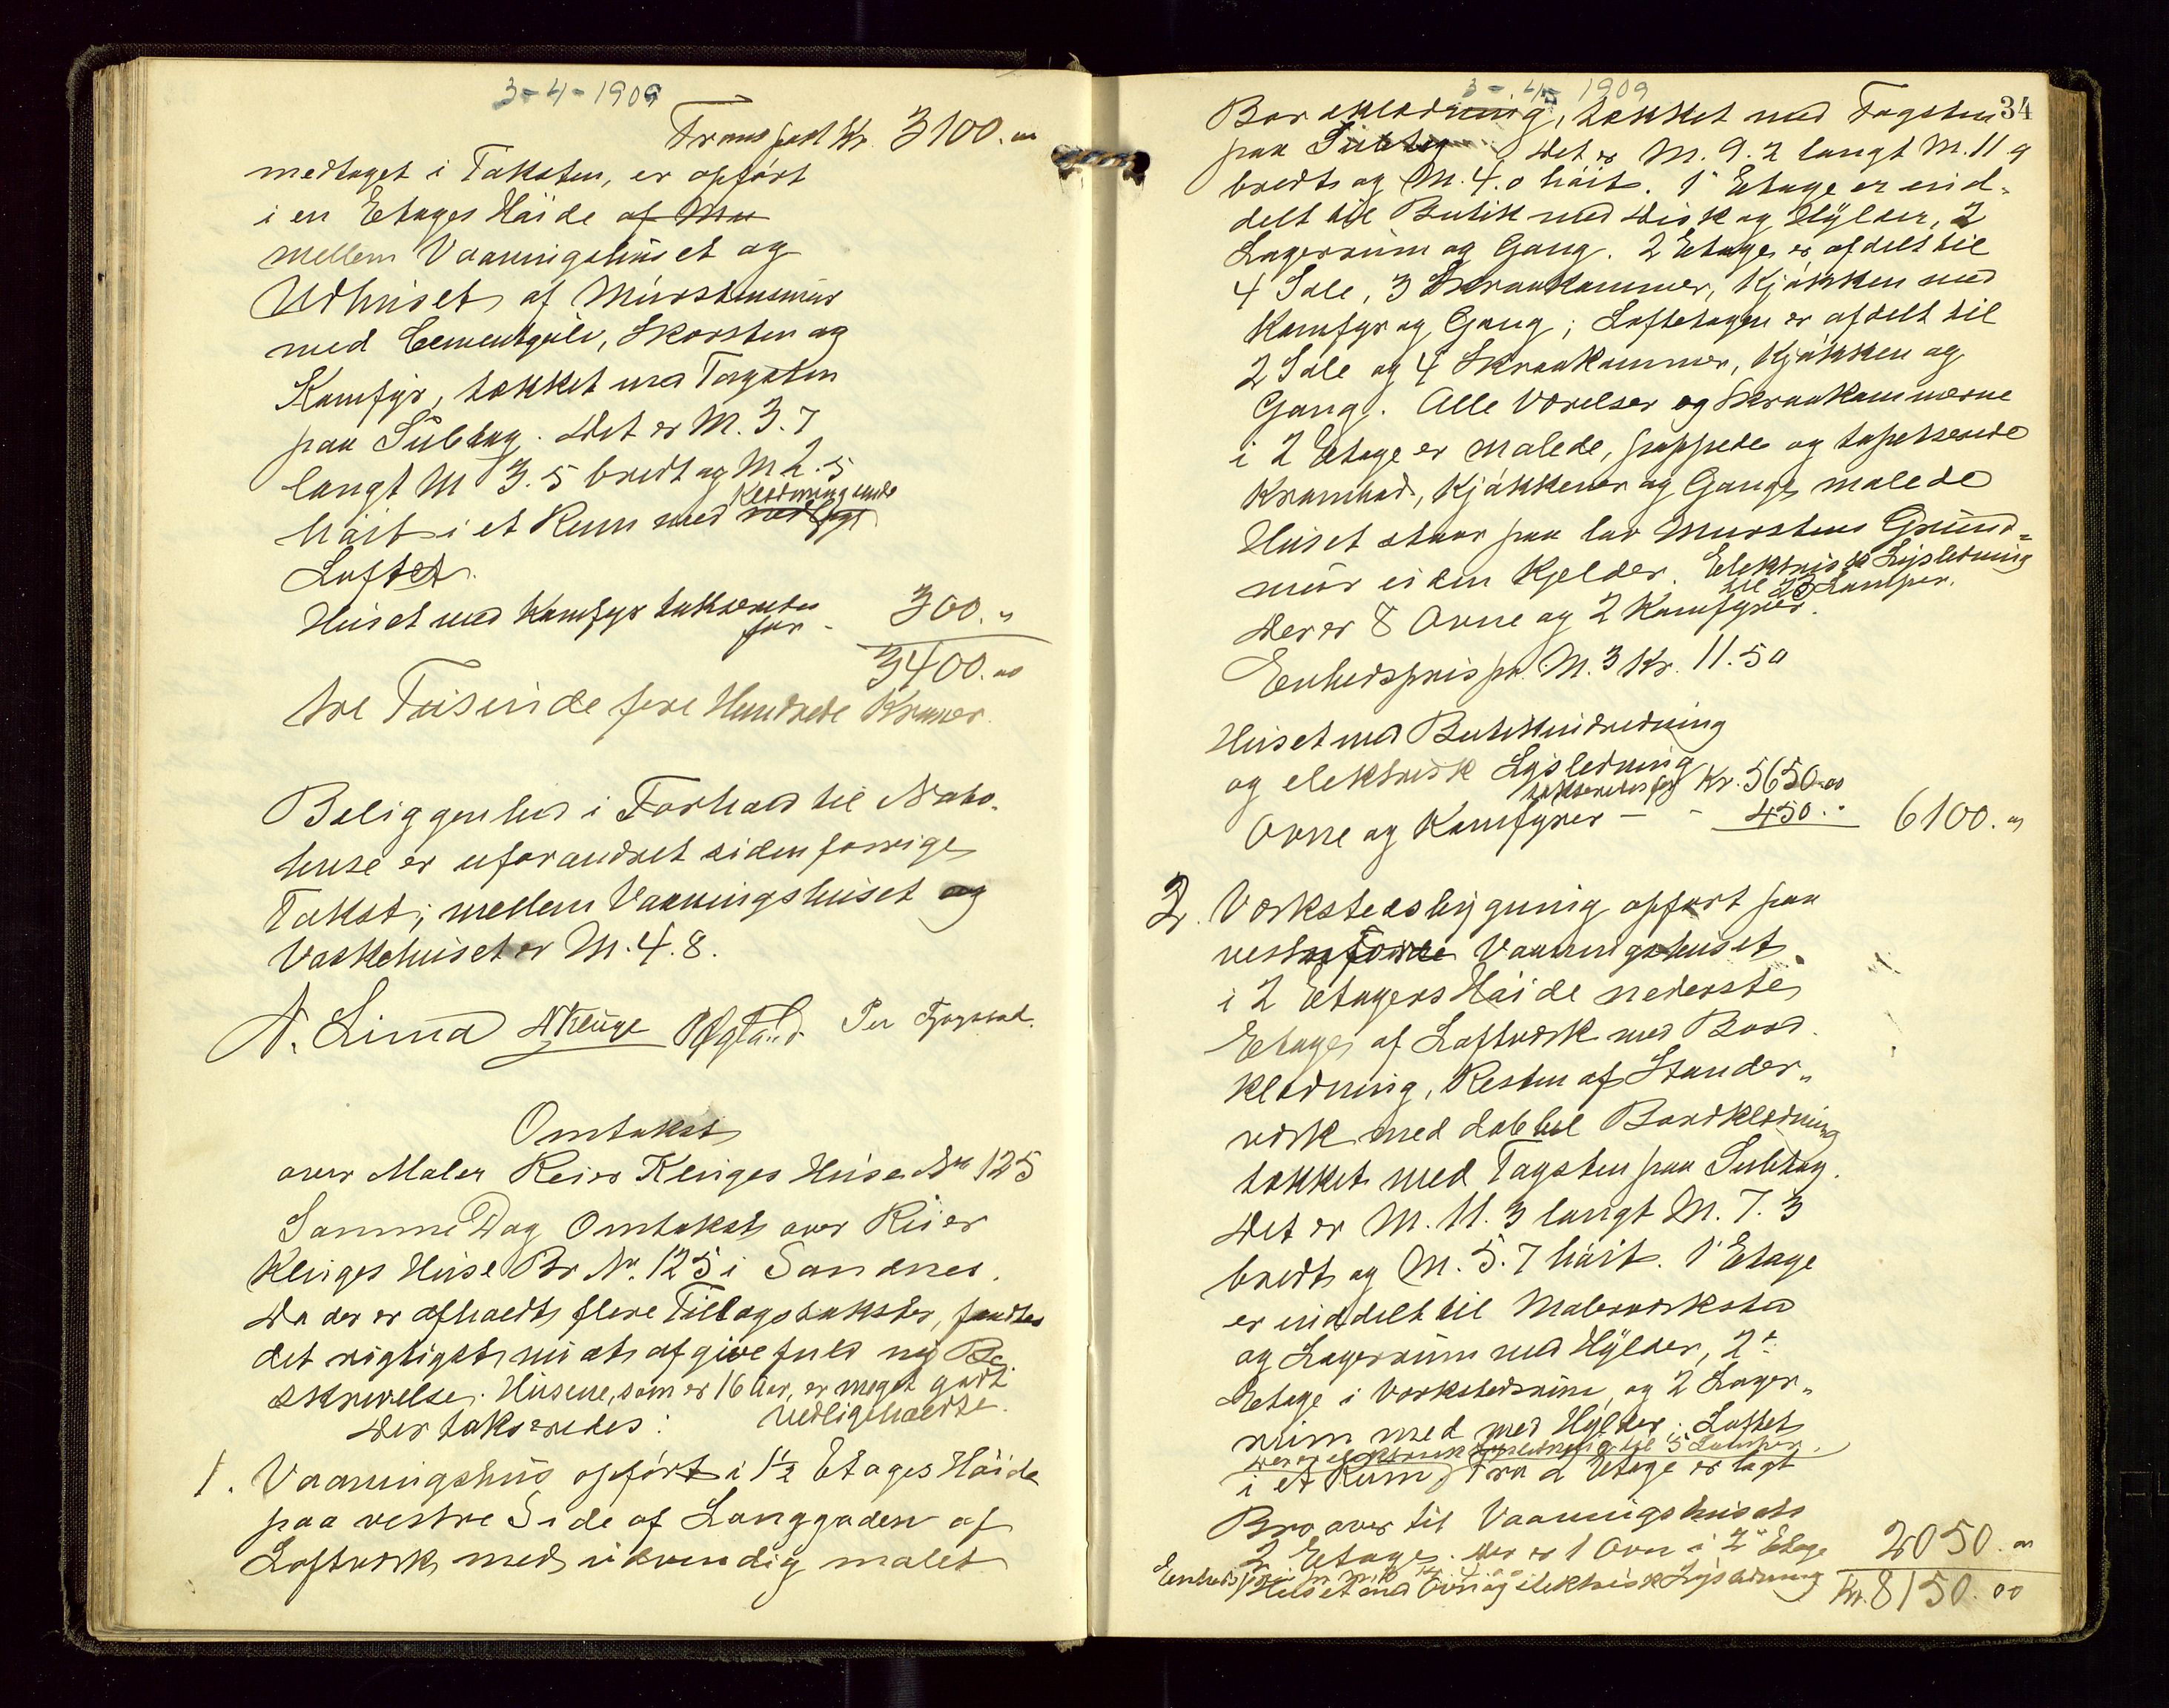 3-4-1909
Transport Kr. 3100.00
medtaget i Taksten, er opført
i en Etages Høide af Mu
mellem Vaaningshuset og
Udhuset af Murstensmur
med Cementgulv, Skorsten og
Komfyr, tækket med Tagsten
paa Subtag. Det er M. 3.7
langt M 3.5 bredt og M 2.5
Klædning under
høit i et Rum med
Loftet.
Huset med Komfyr takseredes
for - 300.00
3400.00
tre Tusinde fire Hundrede Kroner.
Beliggenhed i Forhold til Nabo-
huse er uforandret siden forrige
Takst; mellem Vaaningshuset og
Vaskehuset er M. 4.8.
N. Lima Kluge
Omtakst
over Maler Reier Kluges Huse No 125
Samme Dag Omtakst over Reier
Kluges Huse Br. No. 125 i Sandnes.
Da der er afholdt flere Tillægstakster, fandtes
det rigtigst nu at afgive fuld ny Be-
skrivelse. Husene, som er 16 Aar, er meget godt
vedligeholdte.
Der takseredes:
1. Vaaningshus opført i 1½ Etages Høide
paa vestre Side af Langgaden af
Loftværk med udvendig malet
3-4-1909
34
Bordklædning, tækket med Tagsten
paa Subtag. Det er M. 9.2 langt M. 11.9
bredt og M. 4.0 høit. 1ste Etage er ind-
delt til Butik med Disk og Hylder, 2
Lagerrum og Gang. 2 Etage er afdelt til
4 Sale, 3 Skraakammer, Kjøkken med
Komfyr og Gang; Loftetagen er afdelt til
2 Sale og 4 Skraakammer, Kjøkken og
Gang. Alle Værelser og Skraakammerne
i 2 Etage er malede, pappede og tapetserede
Krambod, Kjøkkener og Gange malede
Huset staar paa lav Murstens Grund-
mur uden Kjelder. Elektrisk Lysledning
til 22 Lamper.
Der er 8 Ovne og 2 Komfyrer.
Enhedspris pr. M.3 Kr. 11.50
Huset med Butikindredning
og elektrisk Lysledning
takseredes for Kr. 5650.00
Ovne og Komfyrer - - 450.00 6100.00
2. Værkstedsbygning opført paa
vestenforde Vaaningshuset
i 2 Etagers Høide nederste
Etage af Loftværk med Bord-
klædning, Resten af Stander-
værk med dobbel Bordklædning
tækket med Tagsten paa Subtag.
Det er M. 11.3 langt M. 7.3
bredt og M. 5.7 høit. 1ste Etage
er inddelt til Malerværksted
og Lagerrum med Hylder, 2den
Etage i Værkstedsrum og 2 Lager-
rum med med Hylder; Loftet
Der er elektrisk Lysledning til 5 Lamper.
i et Rum. Fra 2 Etage er lagt
Bro over til Vaaningshusets
2 Etage. Der er 1 Ovn i 2den Etage 2050.00
Enhedspris pr. M.3 Kr. 4
Huset med Ovn og elektrisk Lysledning Kr. 8150.00